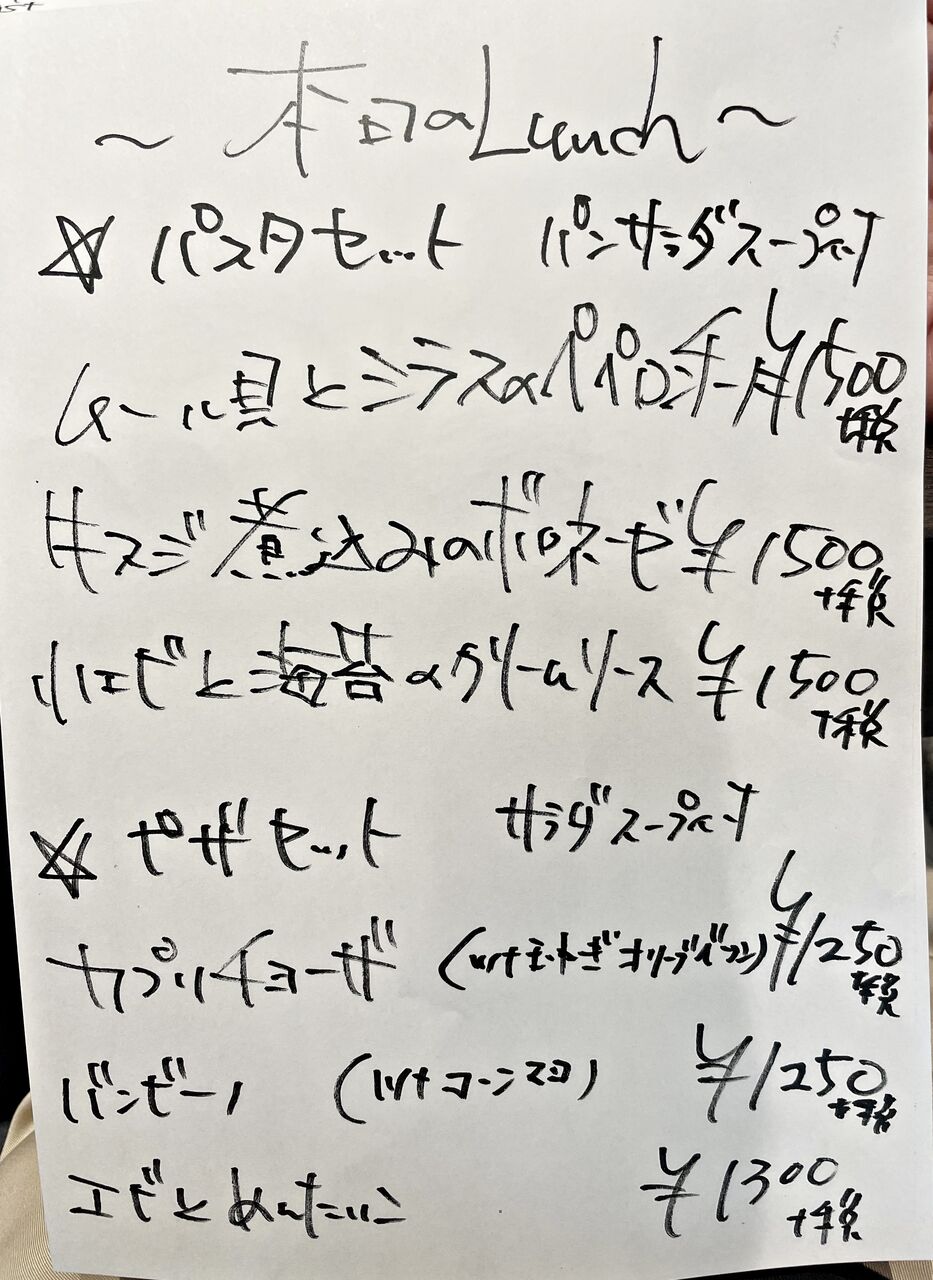 ～本日のLunch～
☆パスタセット パンサラダスープ付
ムール貝とシラスのペペロンチーノ ¥1500
+税
牛スジ煮込みのボロネーゼ ¥1500
+税
小エビと海苔のクリームソース ¥1500
+税
☆ピザセット サラダスープ付
カプリチョーザ (ツナ玉ねぎオリーブベーコン) ¥1250
+税
バンビーノ (ツナコーンマヨ) ¥1250
+税
エビとめんたいこ ¥1300
+税